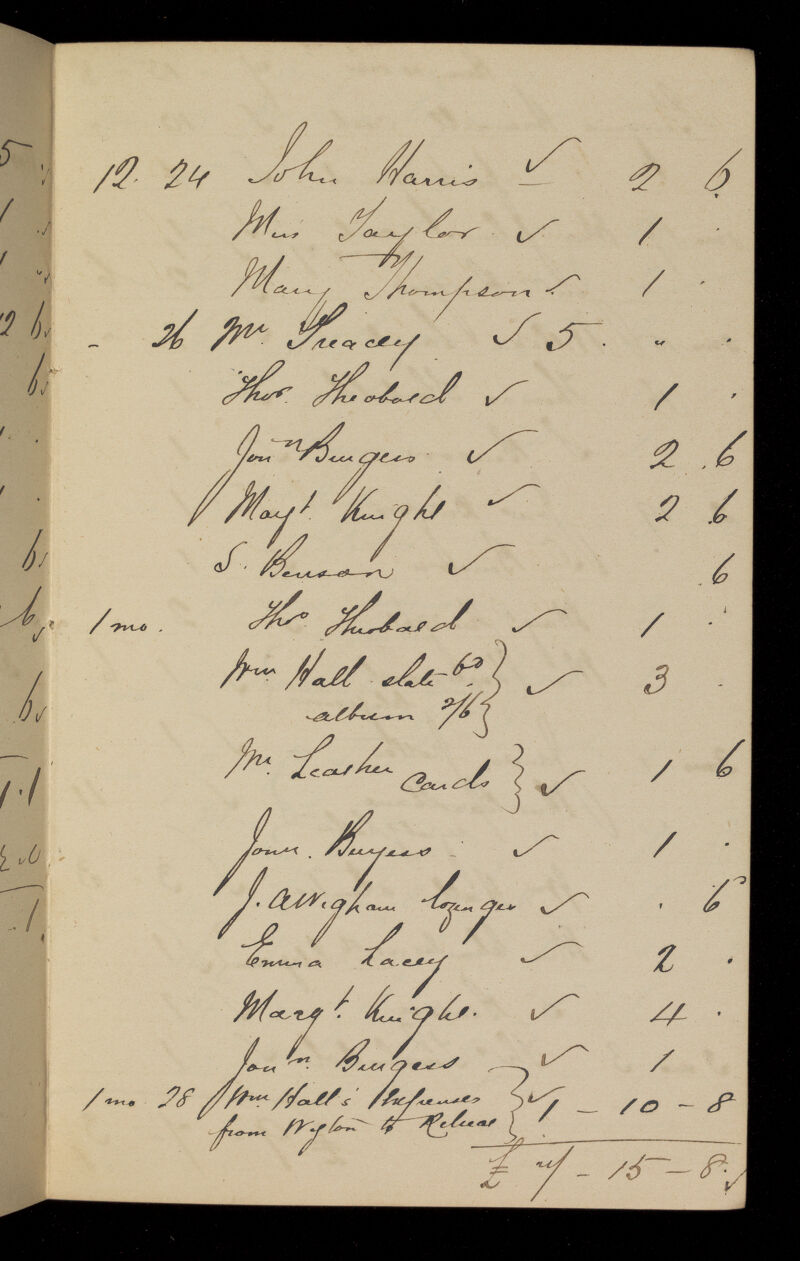 12. 24 John Harris ✓ – 2 6
Miss Taylor ✓ 1 .
Mary Thompson ✓ 1 .
– 26 Mr. Treacey ✓ 5 . " .
Thos. Theobald ✓ 1 .
Jonn Burgess ✓ 2 . 6
Margt. Knight ✓ 2 6
S. Benson ✓ 6
1 mo. Thos Theobald ✓ 1 .
Wm Hall slate 6D } ✓ 3 .
album 2/6
Mr. Leather Cards } ✓ 1 6
Jonn. Burgess ✓ 1 .
J. A Wigham lozenges ✓ . 6
Emma Lacey ✓ 2 .
Margt. Knight. ✓ 4 .
Jonn. Burgess ✓ 1
1 mo 28 Wm. Hall's Expenses } ✓ 1 – 10 – 8
from Wigton to Retreat
£ – 15 – 8. ✓
5
1
1
12 6
6
6
6
6
1.1
1